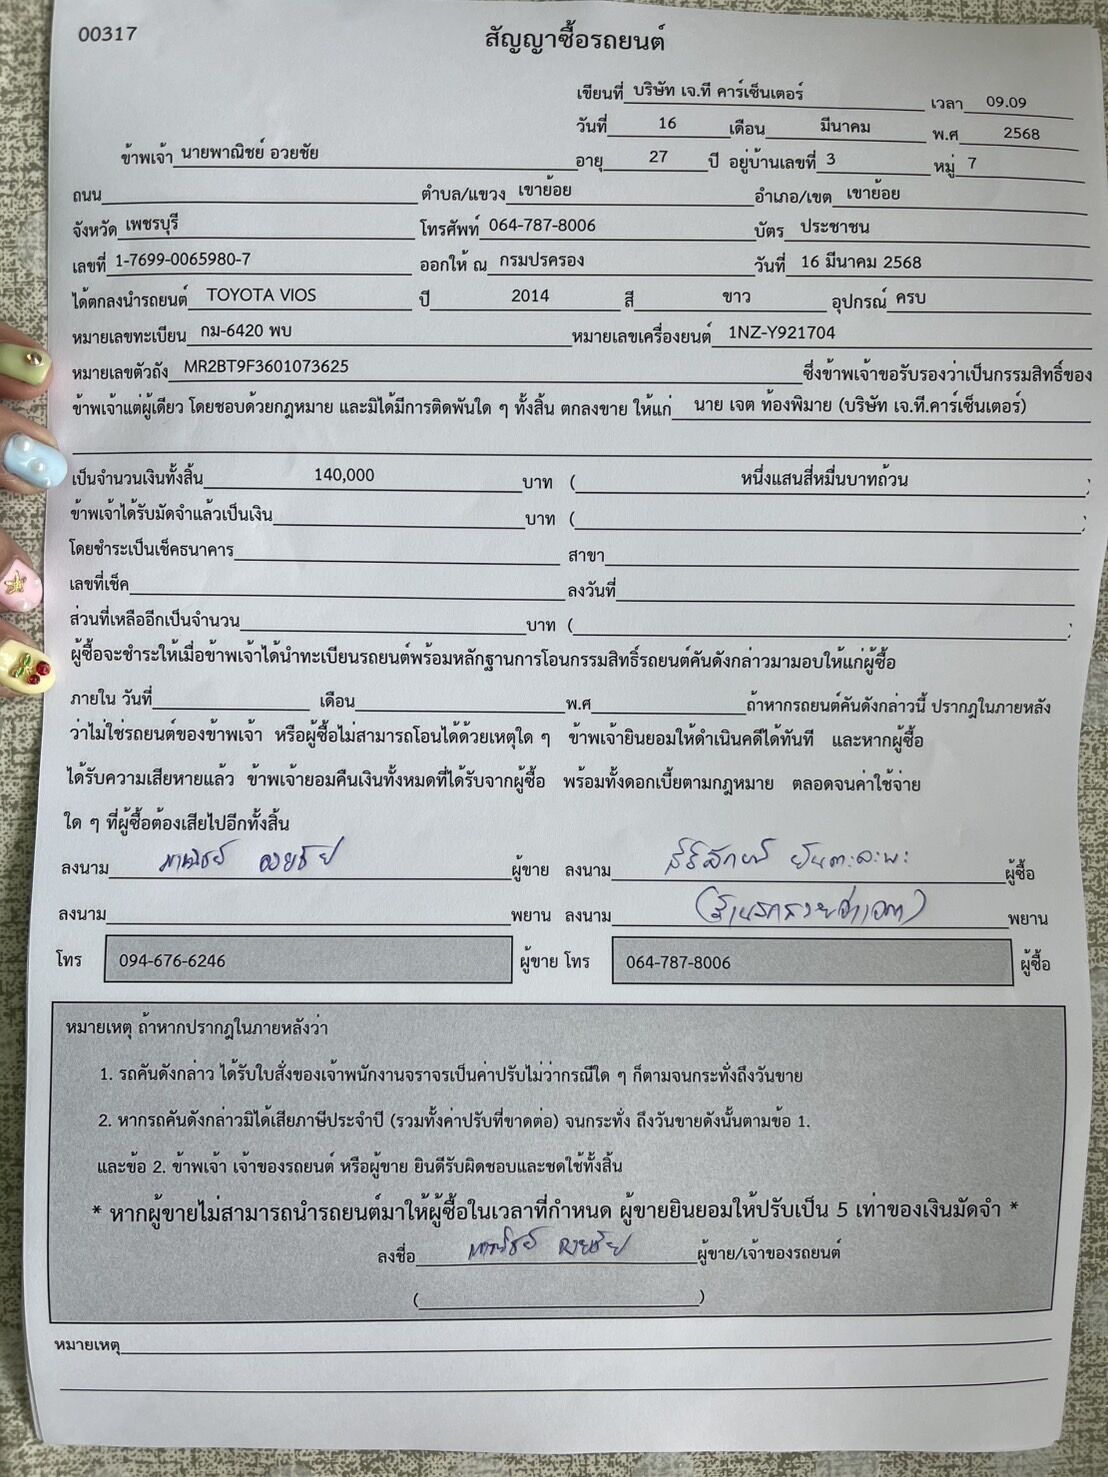 00317
สัญญาซื้อรถยนต์
เขียนที่ บริษัท เจ.ที คาร์เซ็นเตอร์ เวลา 09.09
วันที่ 16 เดือน มีนาคม พ.ศ 2568
ข้าพเจ้า นายพาณิชย์ อวยชัย อายุ 27 ปี อยู่บ้านเลขที่ 3 หมู่ 7
ถนน ตำบล/แขวง เขาย้อย อำเภอ/เขต เขาย้อย
จังหวัด เพชรบุรี โทรศัพท์ 064-787-8006 บัตร ประชาชน
เลขที่ 1-7699-0065980-7 ออกให้ ณ กรมปรครอง วันที่ 16 มีนาคม 2568
ได้ตกลงนำรถยนต์ TOYOTA VIOS ปี 2014 สี ขาว อุปกรณ์ ครบ
หมายเลขทะเบียน กม-6420 พบ หมายเลขเครื่องยนต์ 1NZ-Y921704
หมายเลขตัวถัง MR2BT9F3601073625 ซึ่งข้าพเจ้าขอรับรองว่าเป็นกรรมสิทธิ์ของ
ข้าพเจ้าแต่ผู้เดียว โดยชอบด้วยกฎหมาย และมิได้มีการติดพันใด ๆ ทั้งสิ้น ตกลงขาย ให้แก่ นาย เจต ท้องพิมาย (บริษัท เจ.ที.คาร์เซ็นเตอร์)
เป็นจำนวนเงินทั้งสิ้น 140,000 บาท ( หนึ่งแสนสี่หมื่นบาทถ้วน )
ข้าพเจ้าได้รับมัดจำแล้วเป็นเงิน บาท ( )
โดยชำระเป็นเช็คธนาคาร สาขา
เลขที่เช็ค ลงวันที่
ส่วนที่เหลืออีกเป็นจำนวน บาท ( )
ผู้ซื้อจะชำระให้เมื่อข้าพเจ้าได้นำทะเบียนรถยนต์พร้อมหลักฐานการโอนกรรมสิทธิ์รถยนต์คันดังกล่าวมามอบให้แก่ผู้ซื้อ
ภายใน วันที่ เดือน พ.ศ ถ้าหากรถยนต์คันดังกล่าวนี้ ปรากฎในภายหลัง
ว่าไม่ใช่รถยนต์ของข้าพเจ้า หรือผู้ซื้อไม่สามารถโอนได้ด้วยเหตุใด ๆ ข้าพเจ้ายินยอมให้ดำเนินคดีได้ทันที และหากผู้ซื้อ
ได้รับความเสียหายแล้ว ข้าพเจ้ายอมคืนเงินทั้งหมดที่ได้รับจากผู้ซื้อ พร้อมทั้งดอกเบี้ยตามกฎหมาย ตลอดจนค่าใช้จ่าย
ใด ๆ ที่ผู้ซื้อต้องเสียไปอีกทั้งสิ้น
ลงนาม พาณิชย์ อวยชัย ผู้ขาย ลงนาม ผู้ซื้อ
ลงนาม พยาน ลงนาม พยาน
โทร 094-676-6246 ผู้ขาย โทร 064-787-8006 ผู้ซื้อ
หมายเหตุ ถ้าหากปรากฎในภายหลังว่า
1. รถคันดังกล่าว ได้รับใบสั่งของเจ้าพนักงานจราจรเป็นค่าปรับไม่ว่ากรณีใด ๆ ก็ตามจนกระทั่งถึงวันขาย
2. หากรถคันดังกล่าวมิได้เสียภาษีประจำปี (รวมทั้งค่าปรับที่ขาดต่อ) จนกระทั่ง ถึงวันขายดังนั้นตามข้อ 1.
และข้อ 2. ข้าพเจ้า เจ้าของรถยนต์ หรือผู้ขาย ยินดีรับผิดชอบและชดใช้ทั้งสิ้น
* หากผู้ขายไม่สามารถนำรถยนต์มาให้ผู้ซื้อในเวลาที่กำหนด ผู้ขายยินยอมให้ปรับเป็น 5 เท่าของเงินมัดจำ *
ลงชื่อ พาณิชย์ อวยชัย ผู้ขาย/เจ้าของรถยนต์
( )
หมายเหตุ